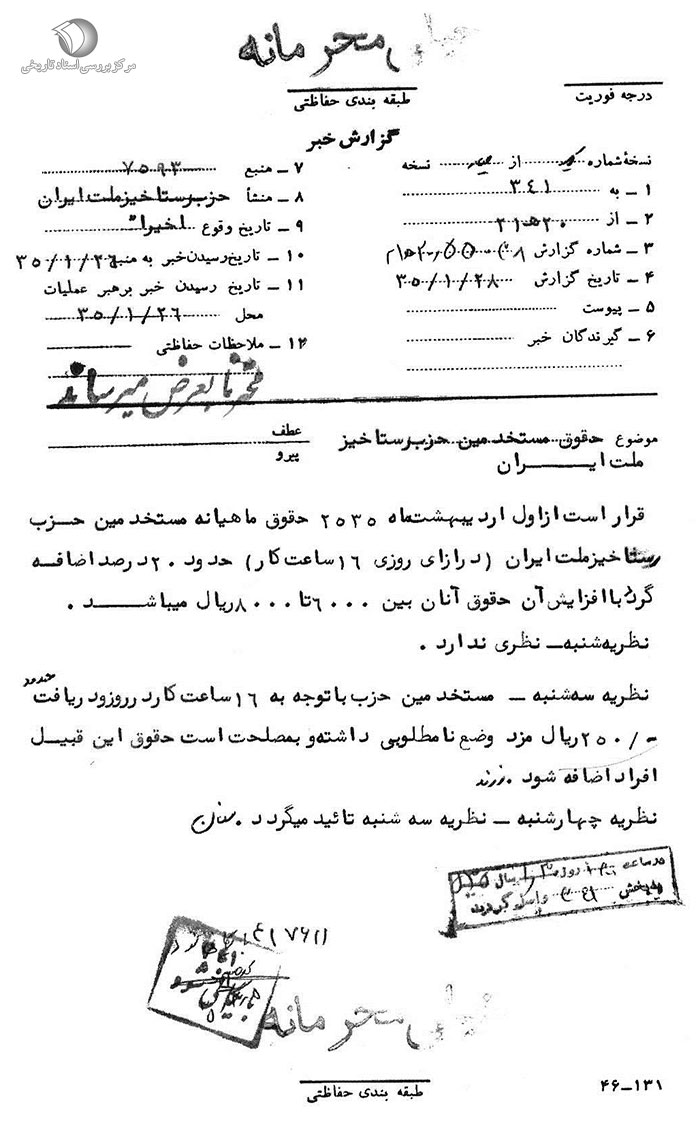 مرکز بررسی اسناد تاریخی
خیلی محرمانه
درجه فوریت
طبقه بندی حفاظتی
گزارش خبر
نسخهٔ شماره از نسخه
۱ ــ به ۳۴۱
۲ ــ از ۲۰ ه ۲۱
۳ ــ شماره گزارش
۴ ــ تاریخ گزارش ۳۵/۱/۲۸
۵ ــ پیوست
۶ ــ گیرندگان خبر
۷ ــ منبع ۷۵۹۳
۸ ــ منشأ حزب رستاخیز ملت ایران
۹ ــ تاریخ وقوع اخیرا"
۱۰ ــ تاریخ رسیدن خبر به منبع ۳۵/۱/۲۶
۱۱ ــ تاریخ رسیدن خبر برهبر عملیات
محل ۳۵/۱/۲۶
۱۲ ــ ملاحظات حفاظتی
بعرض میرساند
موضوع حقوق مستخدمین حزب رستاخیز
ملت ایــــــران
عطف
پیرو
قرار است از اول اردیبهشت ماه ۲۵۳۵ حقوق ماهیانه مستخدمین حــزب
رستاخیز ملت ایران (در ازای روزی ۱۶ ساعت کار) حدود ۲۰ درصد اضافــه
گردد با افزایش آن حقوق آنان بین ۶۰۰۰ تا ۸۰۰۰ ریال میباشــــد .
نظریه شنبه ــ نظری ندارد .
نظریه سه شنبه ــ مستخدمین حزب با توجه به ۱۶ ساعت کار در روز و دریافت حدود
۲۵۰/- ریال مزد وضع نامطلوبی داشته و بمصلحت است حقوق این قبیــل
افراد اضافه شود .
نظریه چهارشنبه ــ نظریه سه شنبه تائید میگردد .
در ساعت روز سال
به بخش ۳۴۱ واصل گردید
خیلی محرمانه
طبقه بندی حفاظتی
۴۶ــ۱۳۱